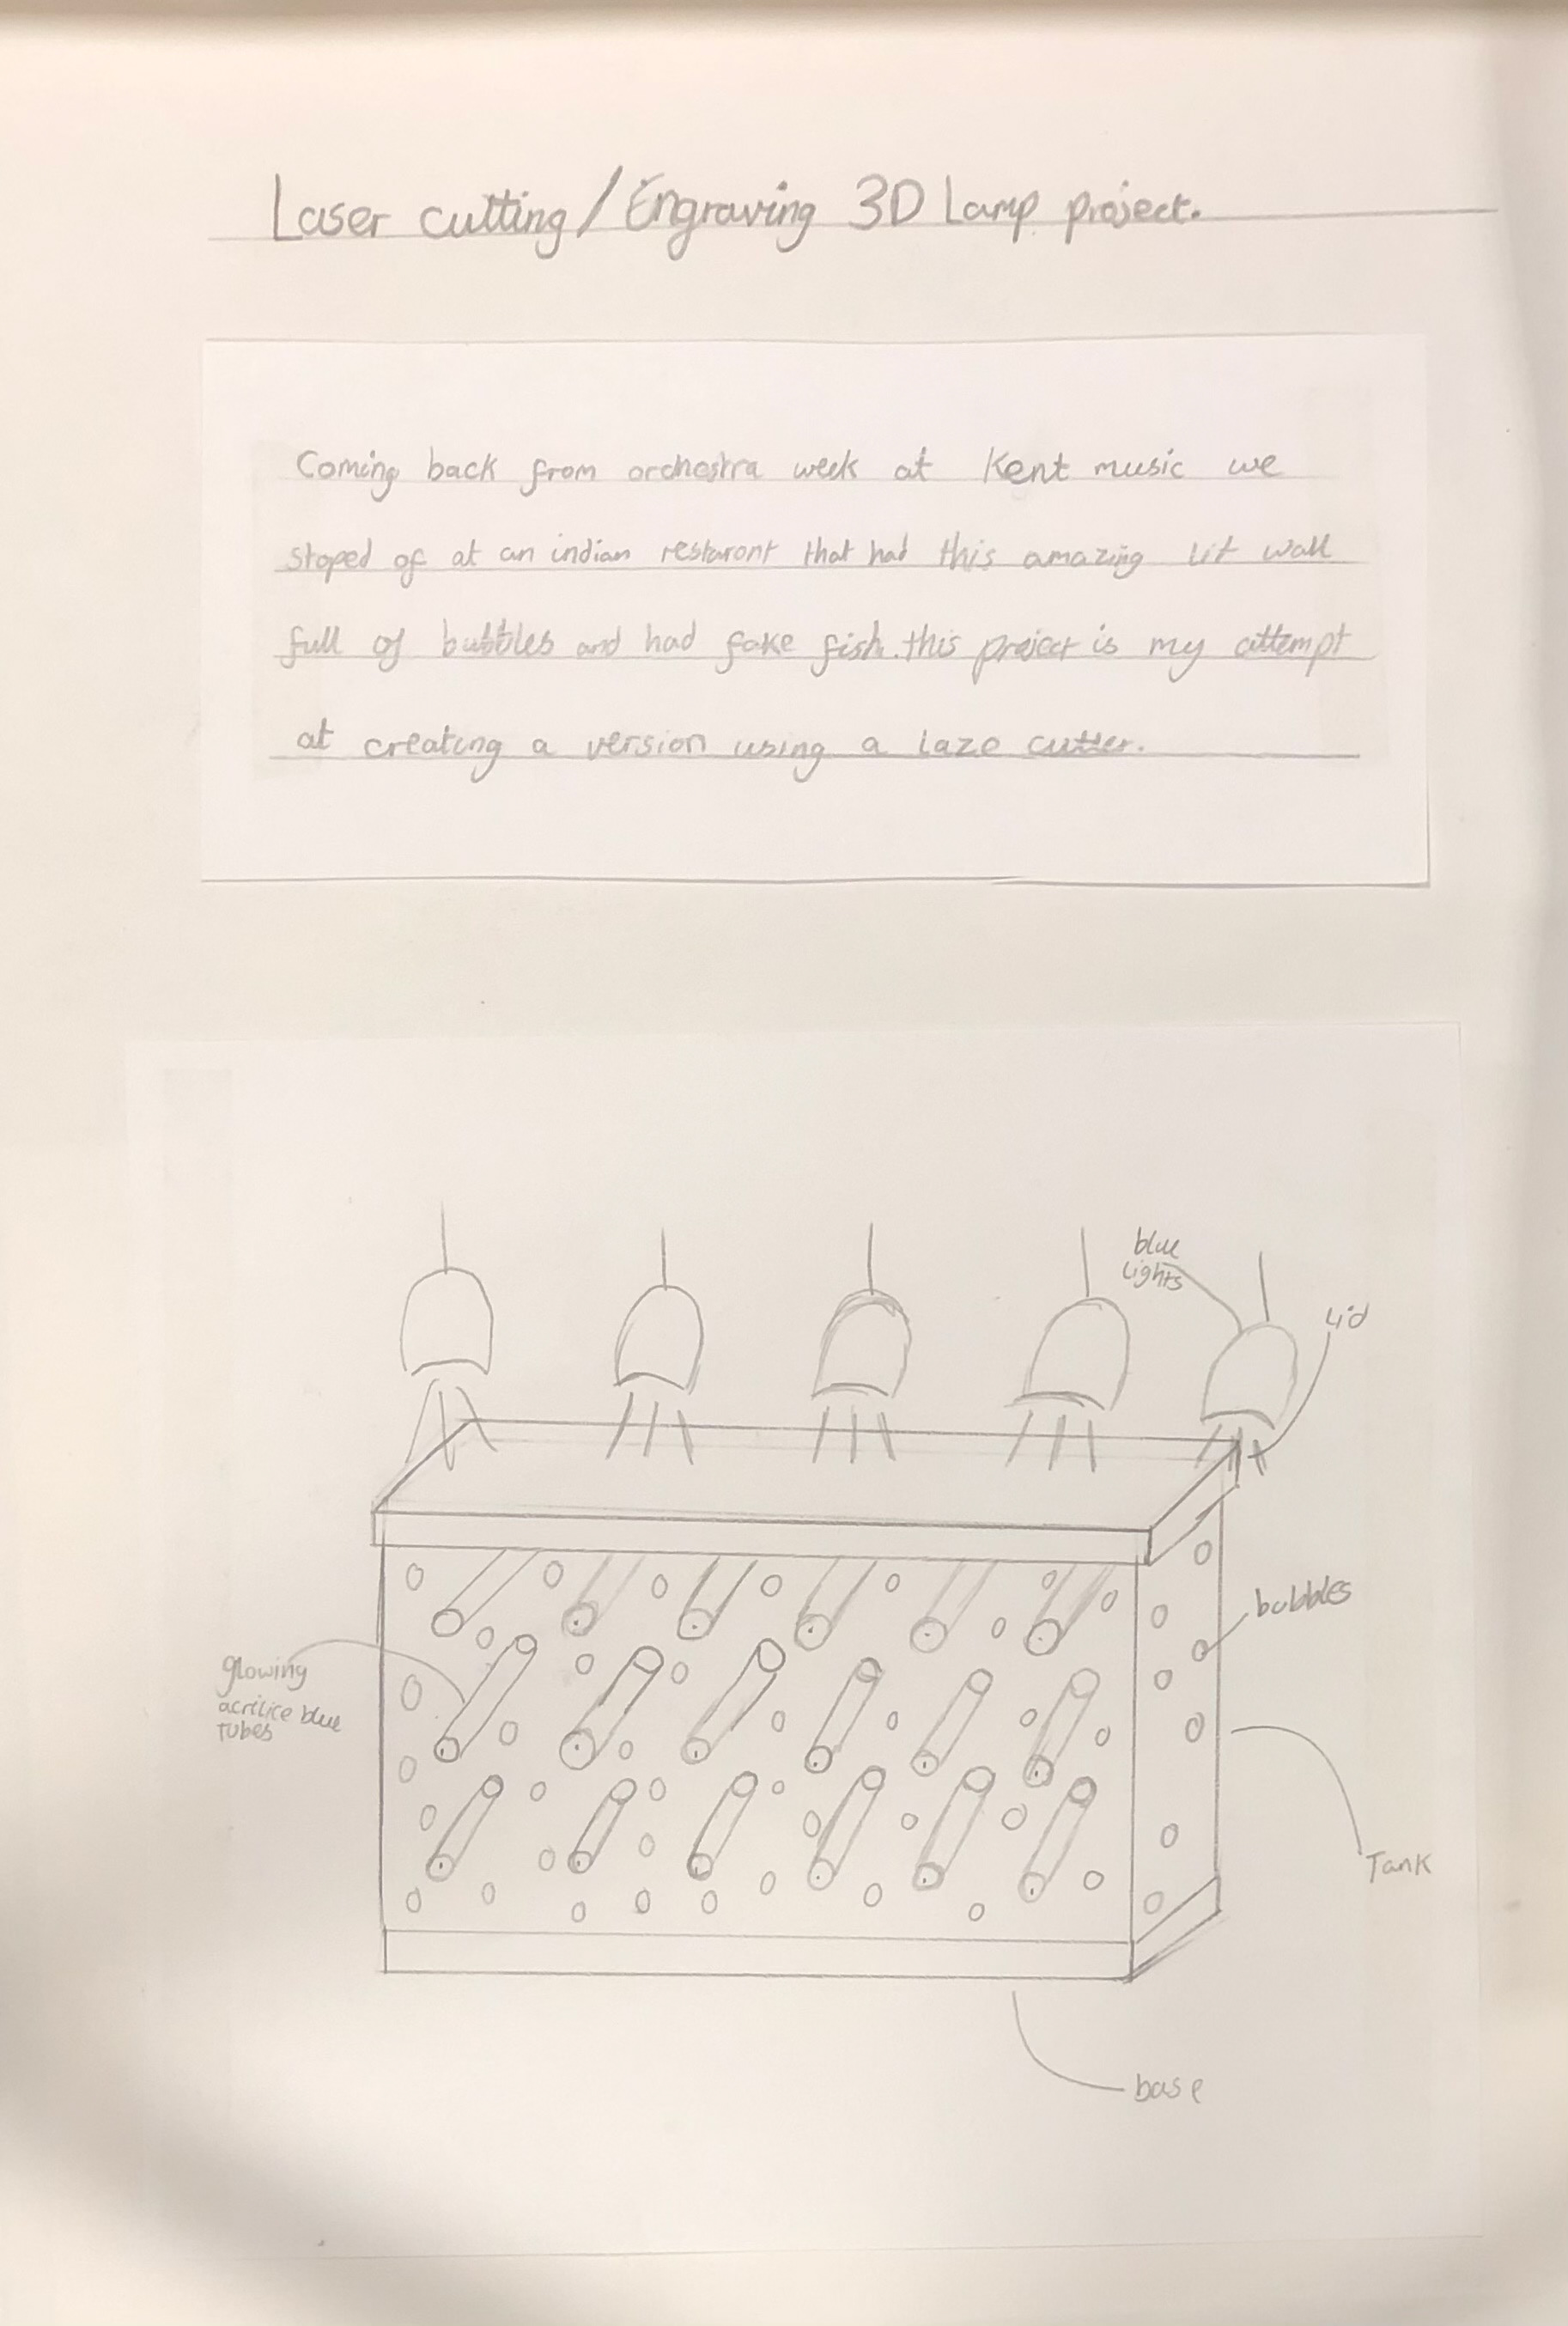 Laser cutting/Engraving 3D Lamp project.
Coming back from orchestra week at Kent music we
stoped of at an indian restaront that had this amazing lit wall
full of bubbles and had fake fish. this project is my attempt
at creating a version using a laze cutter.
blue
lights
lid
bubbles
glowing
acrilice blue
tubes
Tank
base